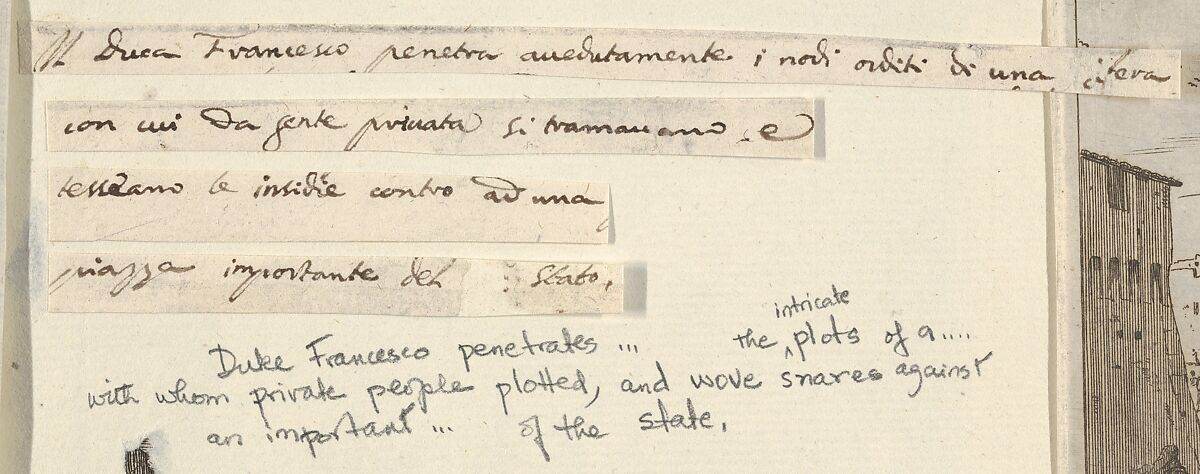 Il Duca Francesco penetra avedutamente i nodi orditi di una cifera
con cui da gente privata si tramavano e
tesseano le insidie contro ad una
piazza importante del Stato.
Duke Francesco penetrates ... the intricate plots of a ....
with whom private people plotted, and wove snares against
an important ... of the state.